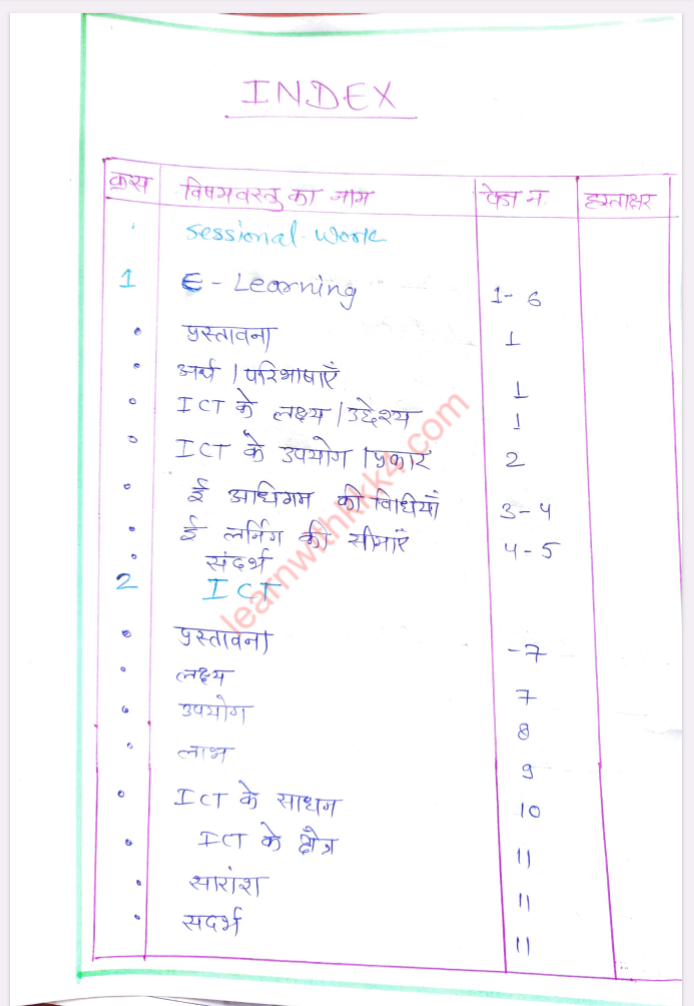 INDEX
क्रस विषयवस्तु का नाम पेज न. हस्ताक्षर
Sessional Work
1 E - Learning 1 - 6
• प्रस्तावना 1
• अर्थ / परिभाषाएँ 1
• ICT के लक्ष्य / उद्देश्य 1
• ICT के उपयोग / प्रकार 2
• ई अधिगम की विधियाँ 3 - 4
• ई लर्निंग की सीमाएँ 4 - 5
• संदर्भ
2 ICT
• प्रस्तावना - 7
• लक्ष्य 7
• उपयोग 8
• लाभ 9
• ICT के साधन 10
• ICT के क्षेत्र 11
• सारांश 11
• सदर्भ 11
learnwithkkk4.com